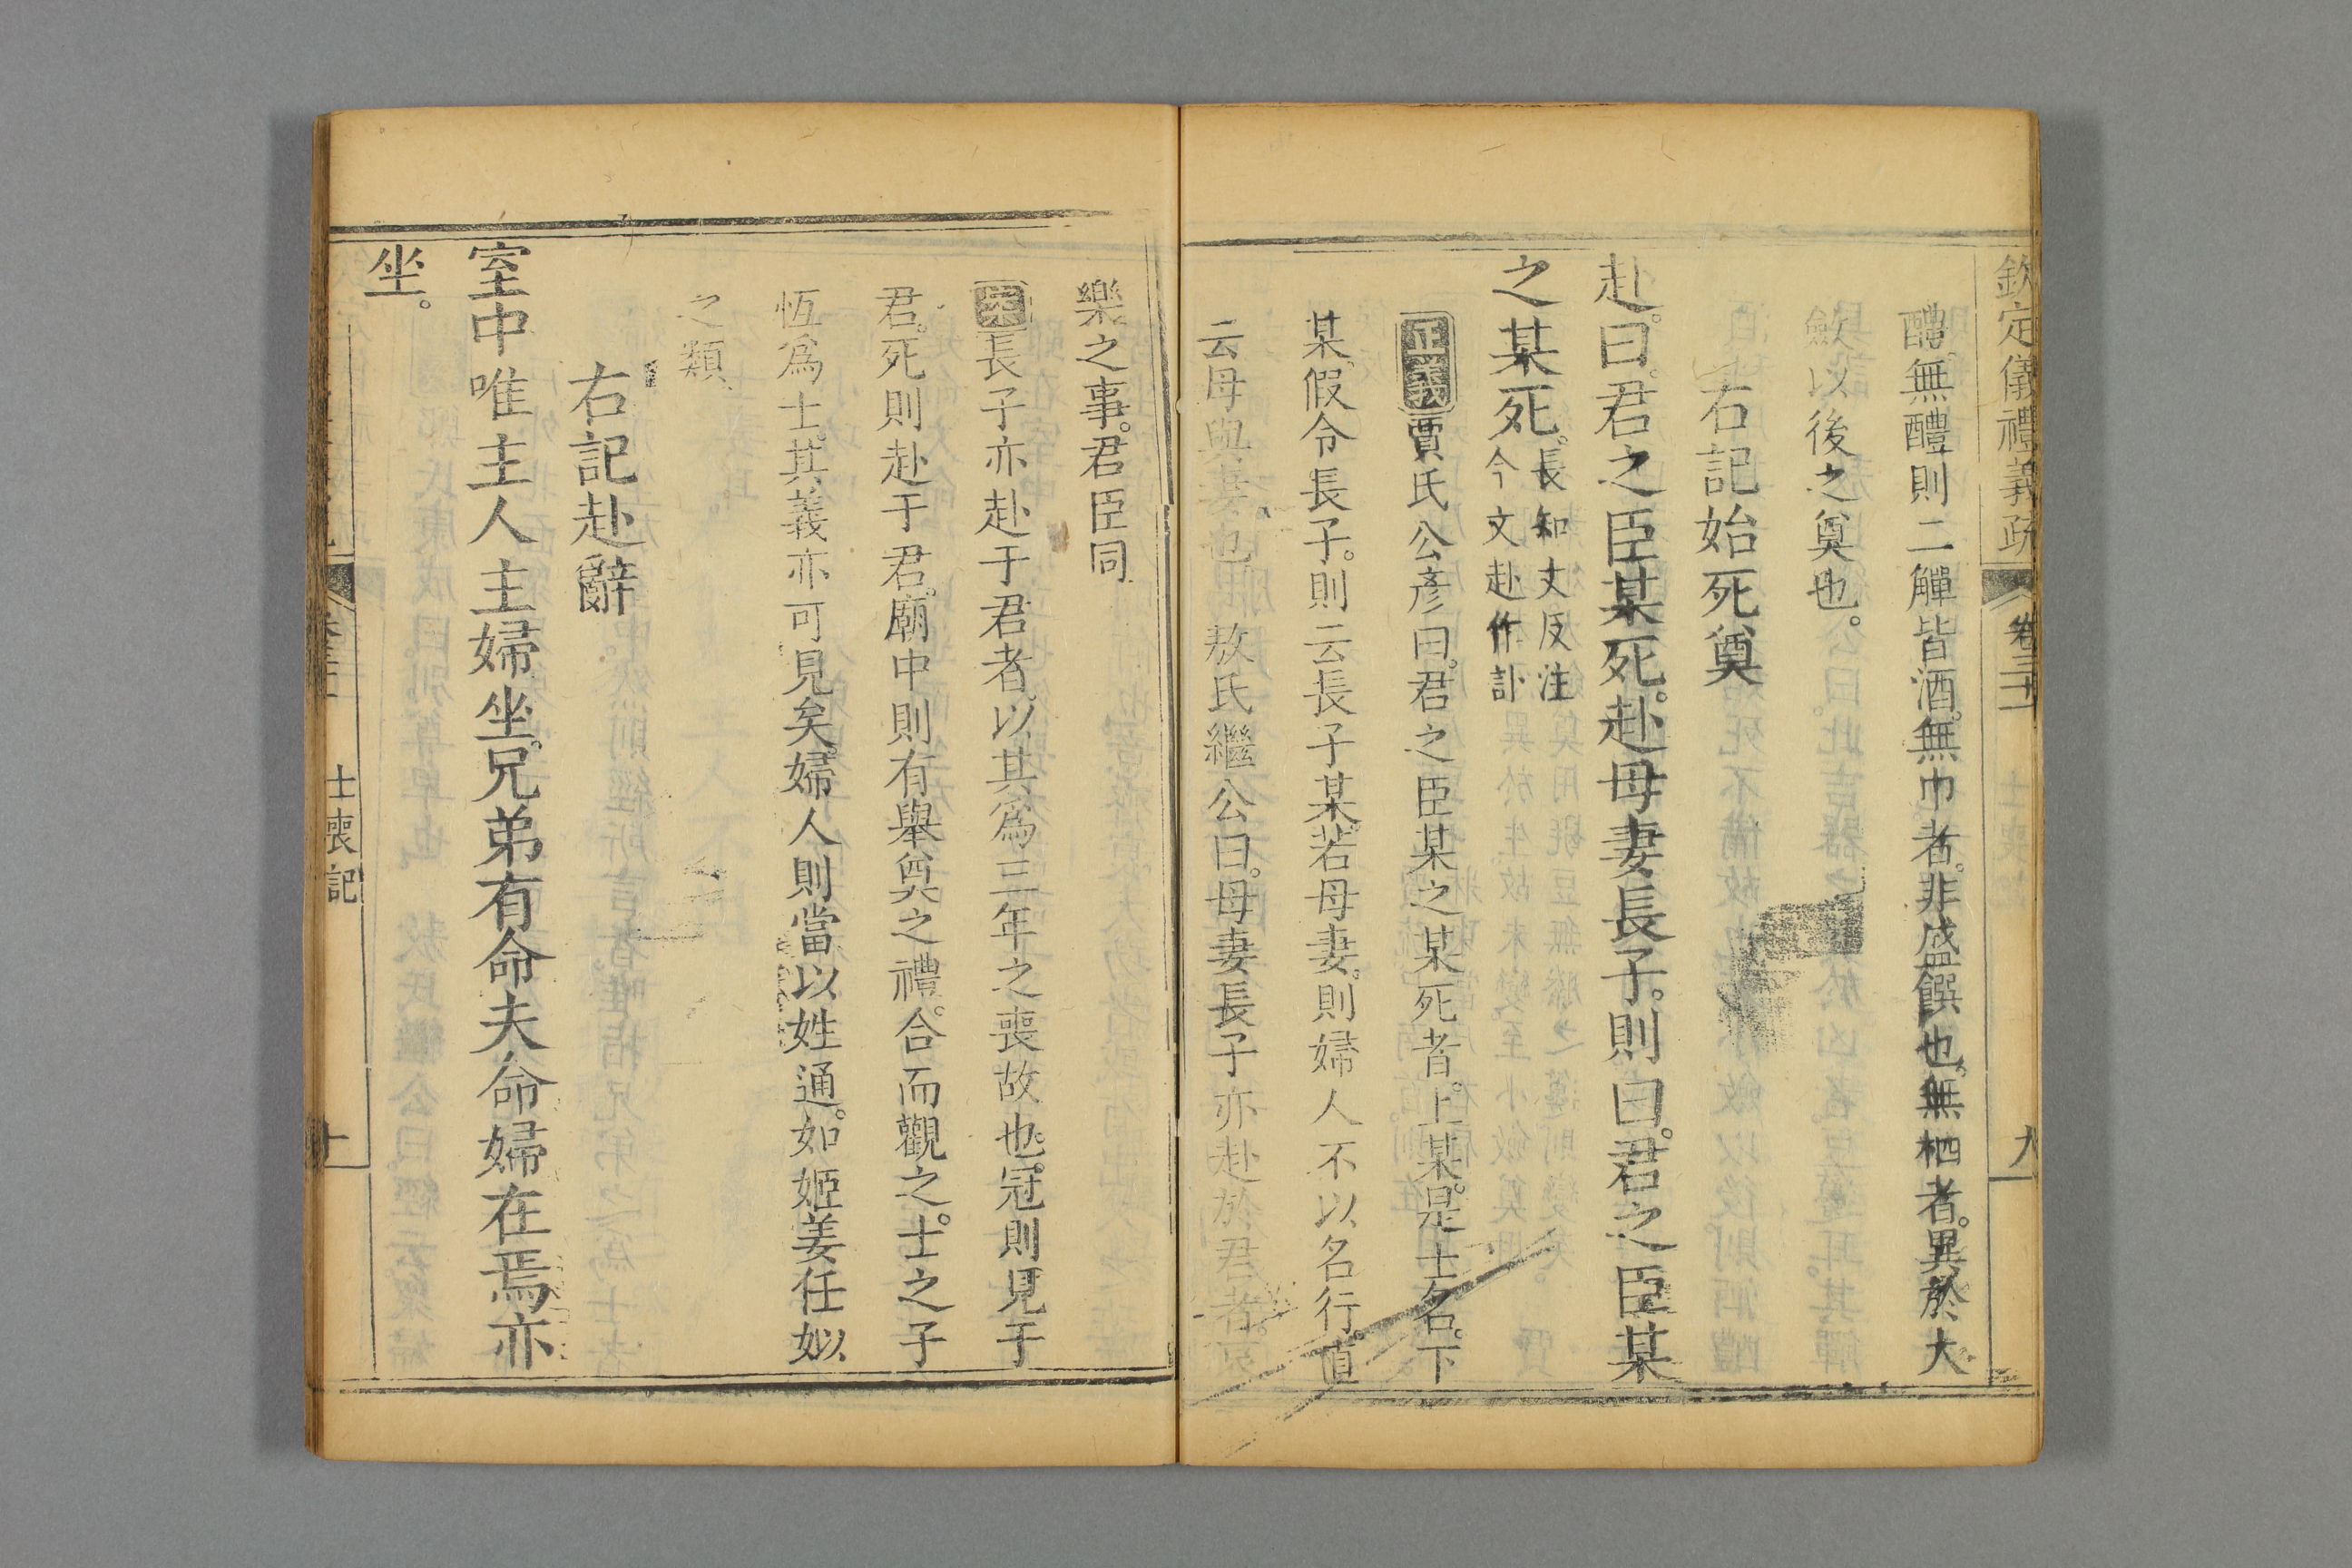 欽定儀禮義疏 卷三十 九
醴無醴則二觶皆酒。無巾者。非盛饌也。無柶者。異於大
斂以後之奠也。
右記始死奠
赴。曰。君之臣某死。赴母妻長子。則曰。君之臣某
之某死。長知丈反注今文赴作訃
正義賈氏公彥曰。君之臣某之某死者。上某。是士名。下
某。假令長子。則云長子某。若母妻。則婦人不以名行。直
云母與妻也 敖氏繼公曰。母妻長子亦赴於君者。
樂之事。君臣同
案長子亦赴于君者。以其為三年之喪故也。冠則見于
君。死則赴于君。廟中則有舉奠之禮。合而觀之。士之子
恆為士。其義亦可見矣。婦人則當以姓通。如姬姜任姒
之類
右記赴辭
室中唯主人主婦坐。兄弟有命夫命婦在焉亦
坐。
士喪記 十